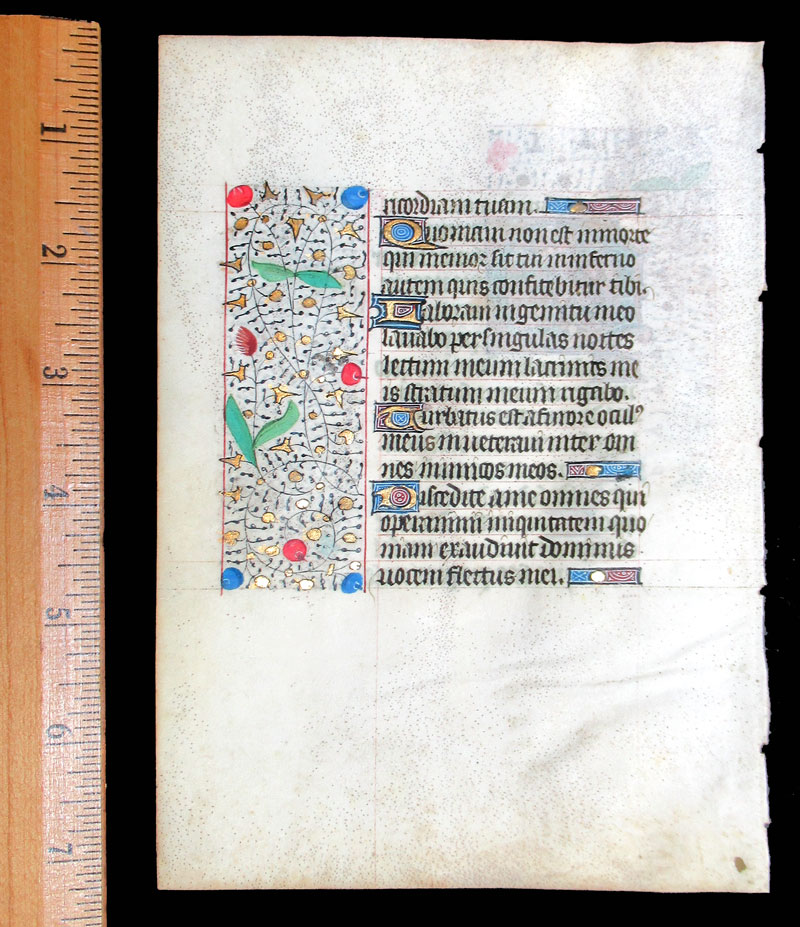 1
2
3
4
5
6
7
ricordiam tuam.
Quoniam non est in morte
qui memor sit tui in inferno
autem quis confitebitur tibi.
Laboraui in gemitu meo
lauabo per singulas noctes
lectum meum lacrimis me
is stratum meum rigabo.
Turbatus est a furore oculꝰ
meus inueteraui inter om
nes inimicos meos.
Discedite a me omnes qui
operamini iniquitatem quo
niam exaudiuit dominus
uocem fletus mei.